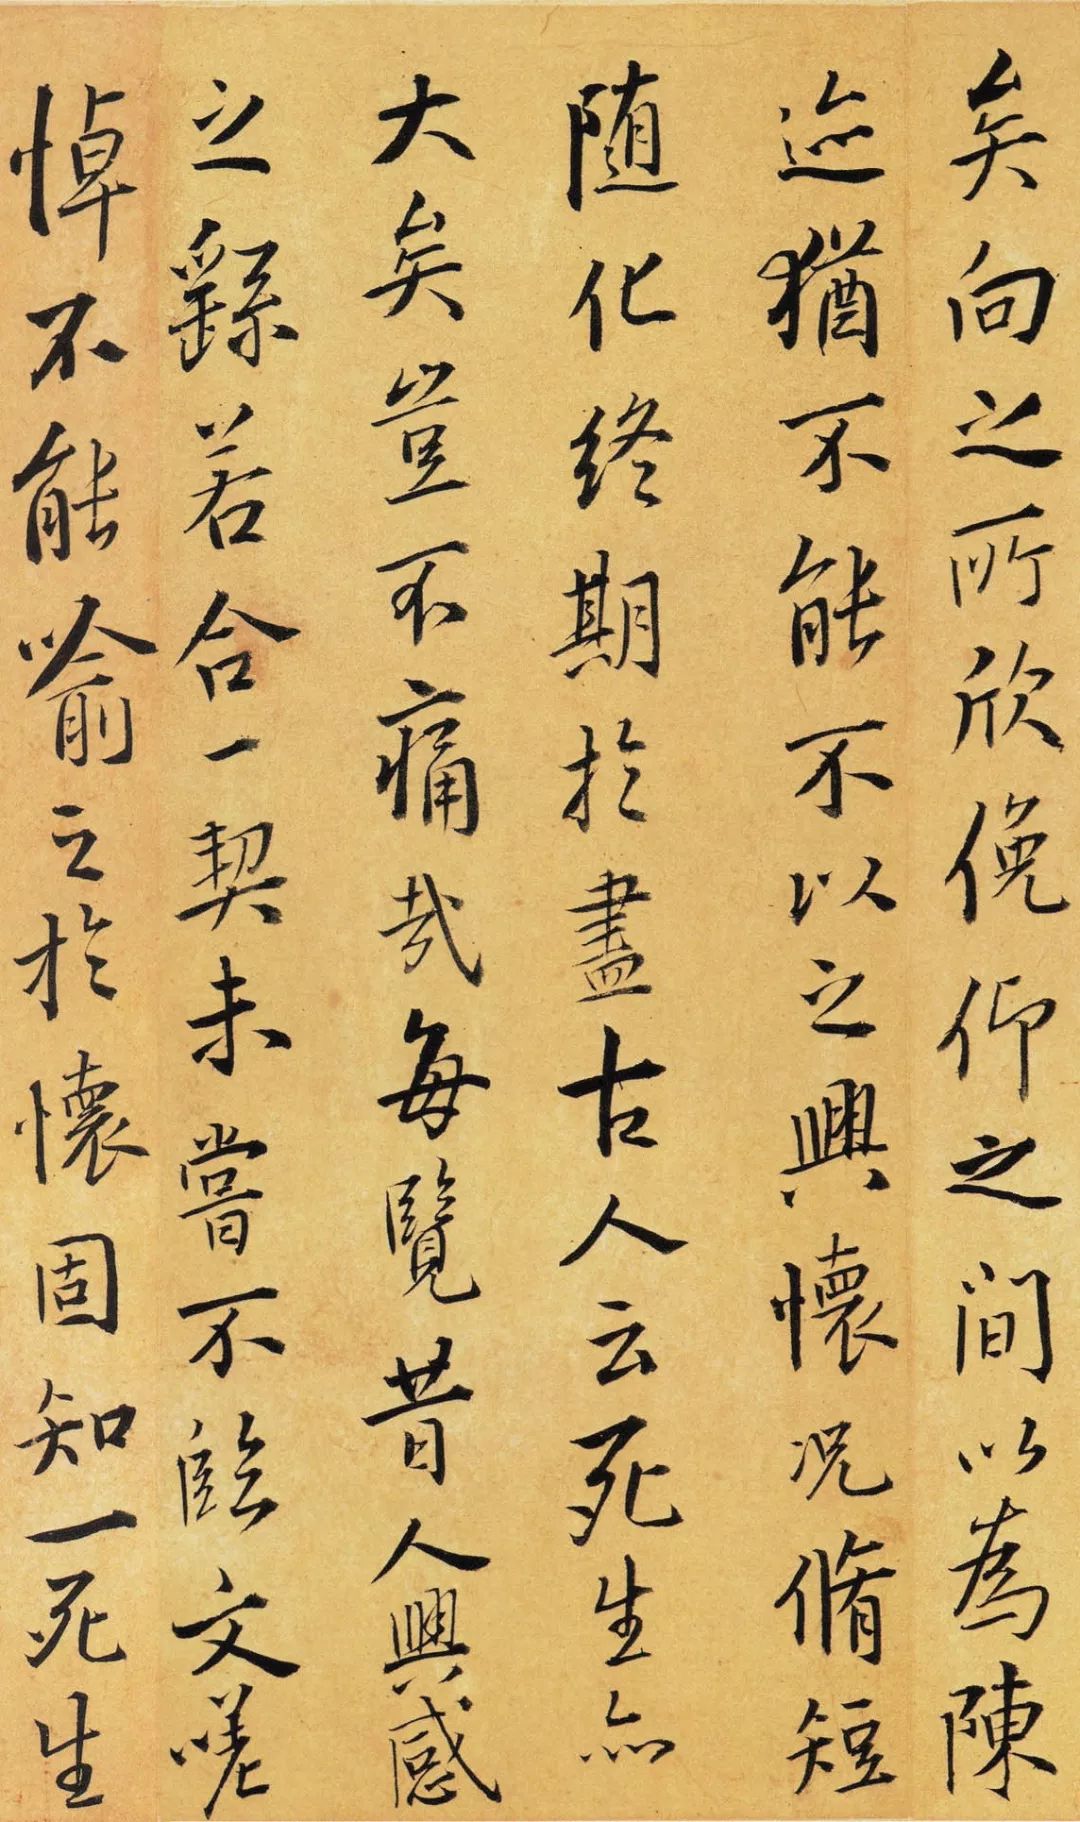 矣向之所欣俛仰之間以為陳
迹猶不能不以之興懷況脩短
隨化終期於盡古人云死生亦
大矣豈不痛哉每覽昔人興感
之繇若合一契未嘗不臨文嗟
悼不能喻之於懷固知一死生